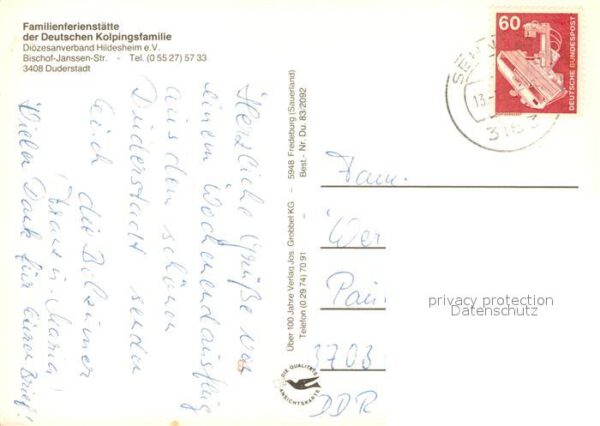 Familienferienstätte
der Deutschen Kolpingsfamilie
Diözesanverband Hildesheim e.V.
Bischof-Janssen-Str. - Tel. (0 55 27) 57 33
3408 Duderstadt
Herzliche Grüße von
einem Wochenendausflug
aus dem schönen
Duderstadt senden
Euch
die
Franz u. Maria
Vielen Dank für Euren Brief!
Über 100 Jahre Verlag Jos. Grobbel KG - 5948 Fredeburg (Sauerland)
Telefon (0 29 74) 70 91 Best.-Nr. Du. 83/2092
DIE QUALITÄTS
ANSICHTSKARTE
60
DEUTSCHE BUNDESPOST
Fam.
Wer
Paul
3703
DDR
privacy protection
Datenschutz